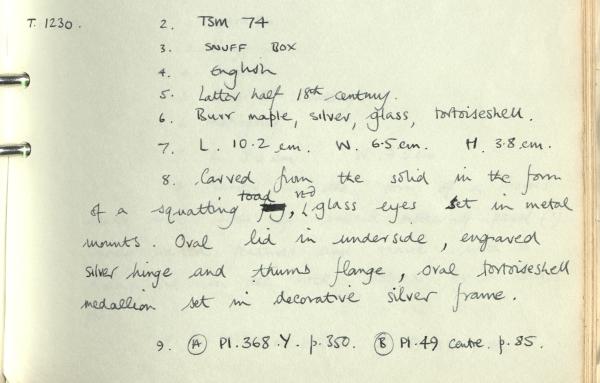 T. 1230. 2. TSM 74
3. SNUFF BOX
4. English
5. Latter half 18th century.
6. Burr maple, silver, glass, tortoiseshell.
7. L. 10.2 cm. W. 6.5 cm. H. 3.8 cm.
8. Carved from the solid in the form
of a squatting toad, red glass eyes set in metal
mounts. Oval lid in underside, engraved
silver hinge and thumb flange, oval tortoiseshell
medallion set in decorative silver frame.
9. (A) Pl. 368.Y. p. 350. (B) Pl. 49 centre. p. 85.